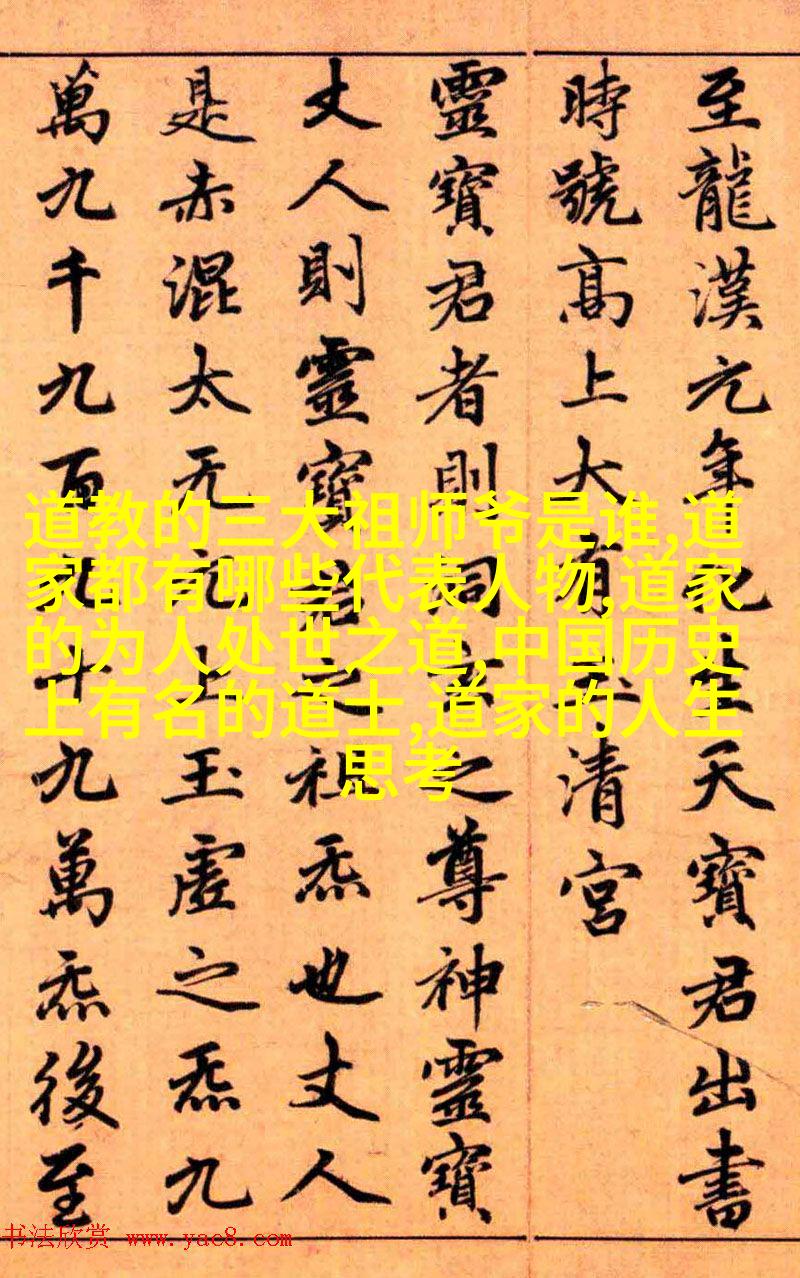 至龍漢元年化生天寶君出書
時號高上大有玉清宮
靈寶君者則洞玄之尊神靈寶
丈人則靈寶君之祖炁也丈人
是赤混太无元上玉虛之炁九
萬九千九百九十九萬炁後至
道教的三大祖师爷是谁,道
家都有哪些代表人物,道家
的为人处世之道,中国历史
上有名的道士,道家的人生
思考
书法欣赏 www.yac8.com